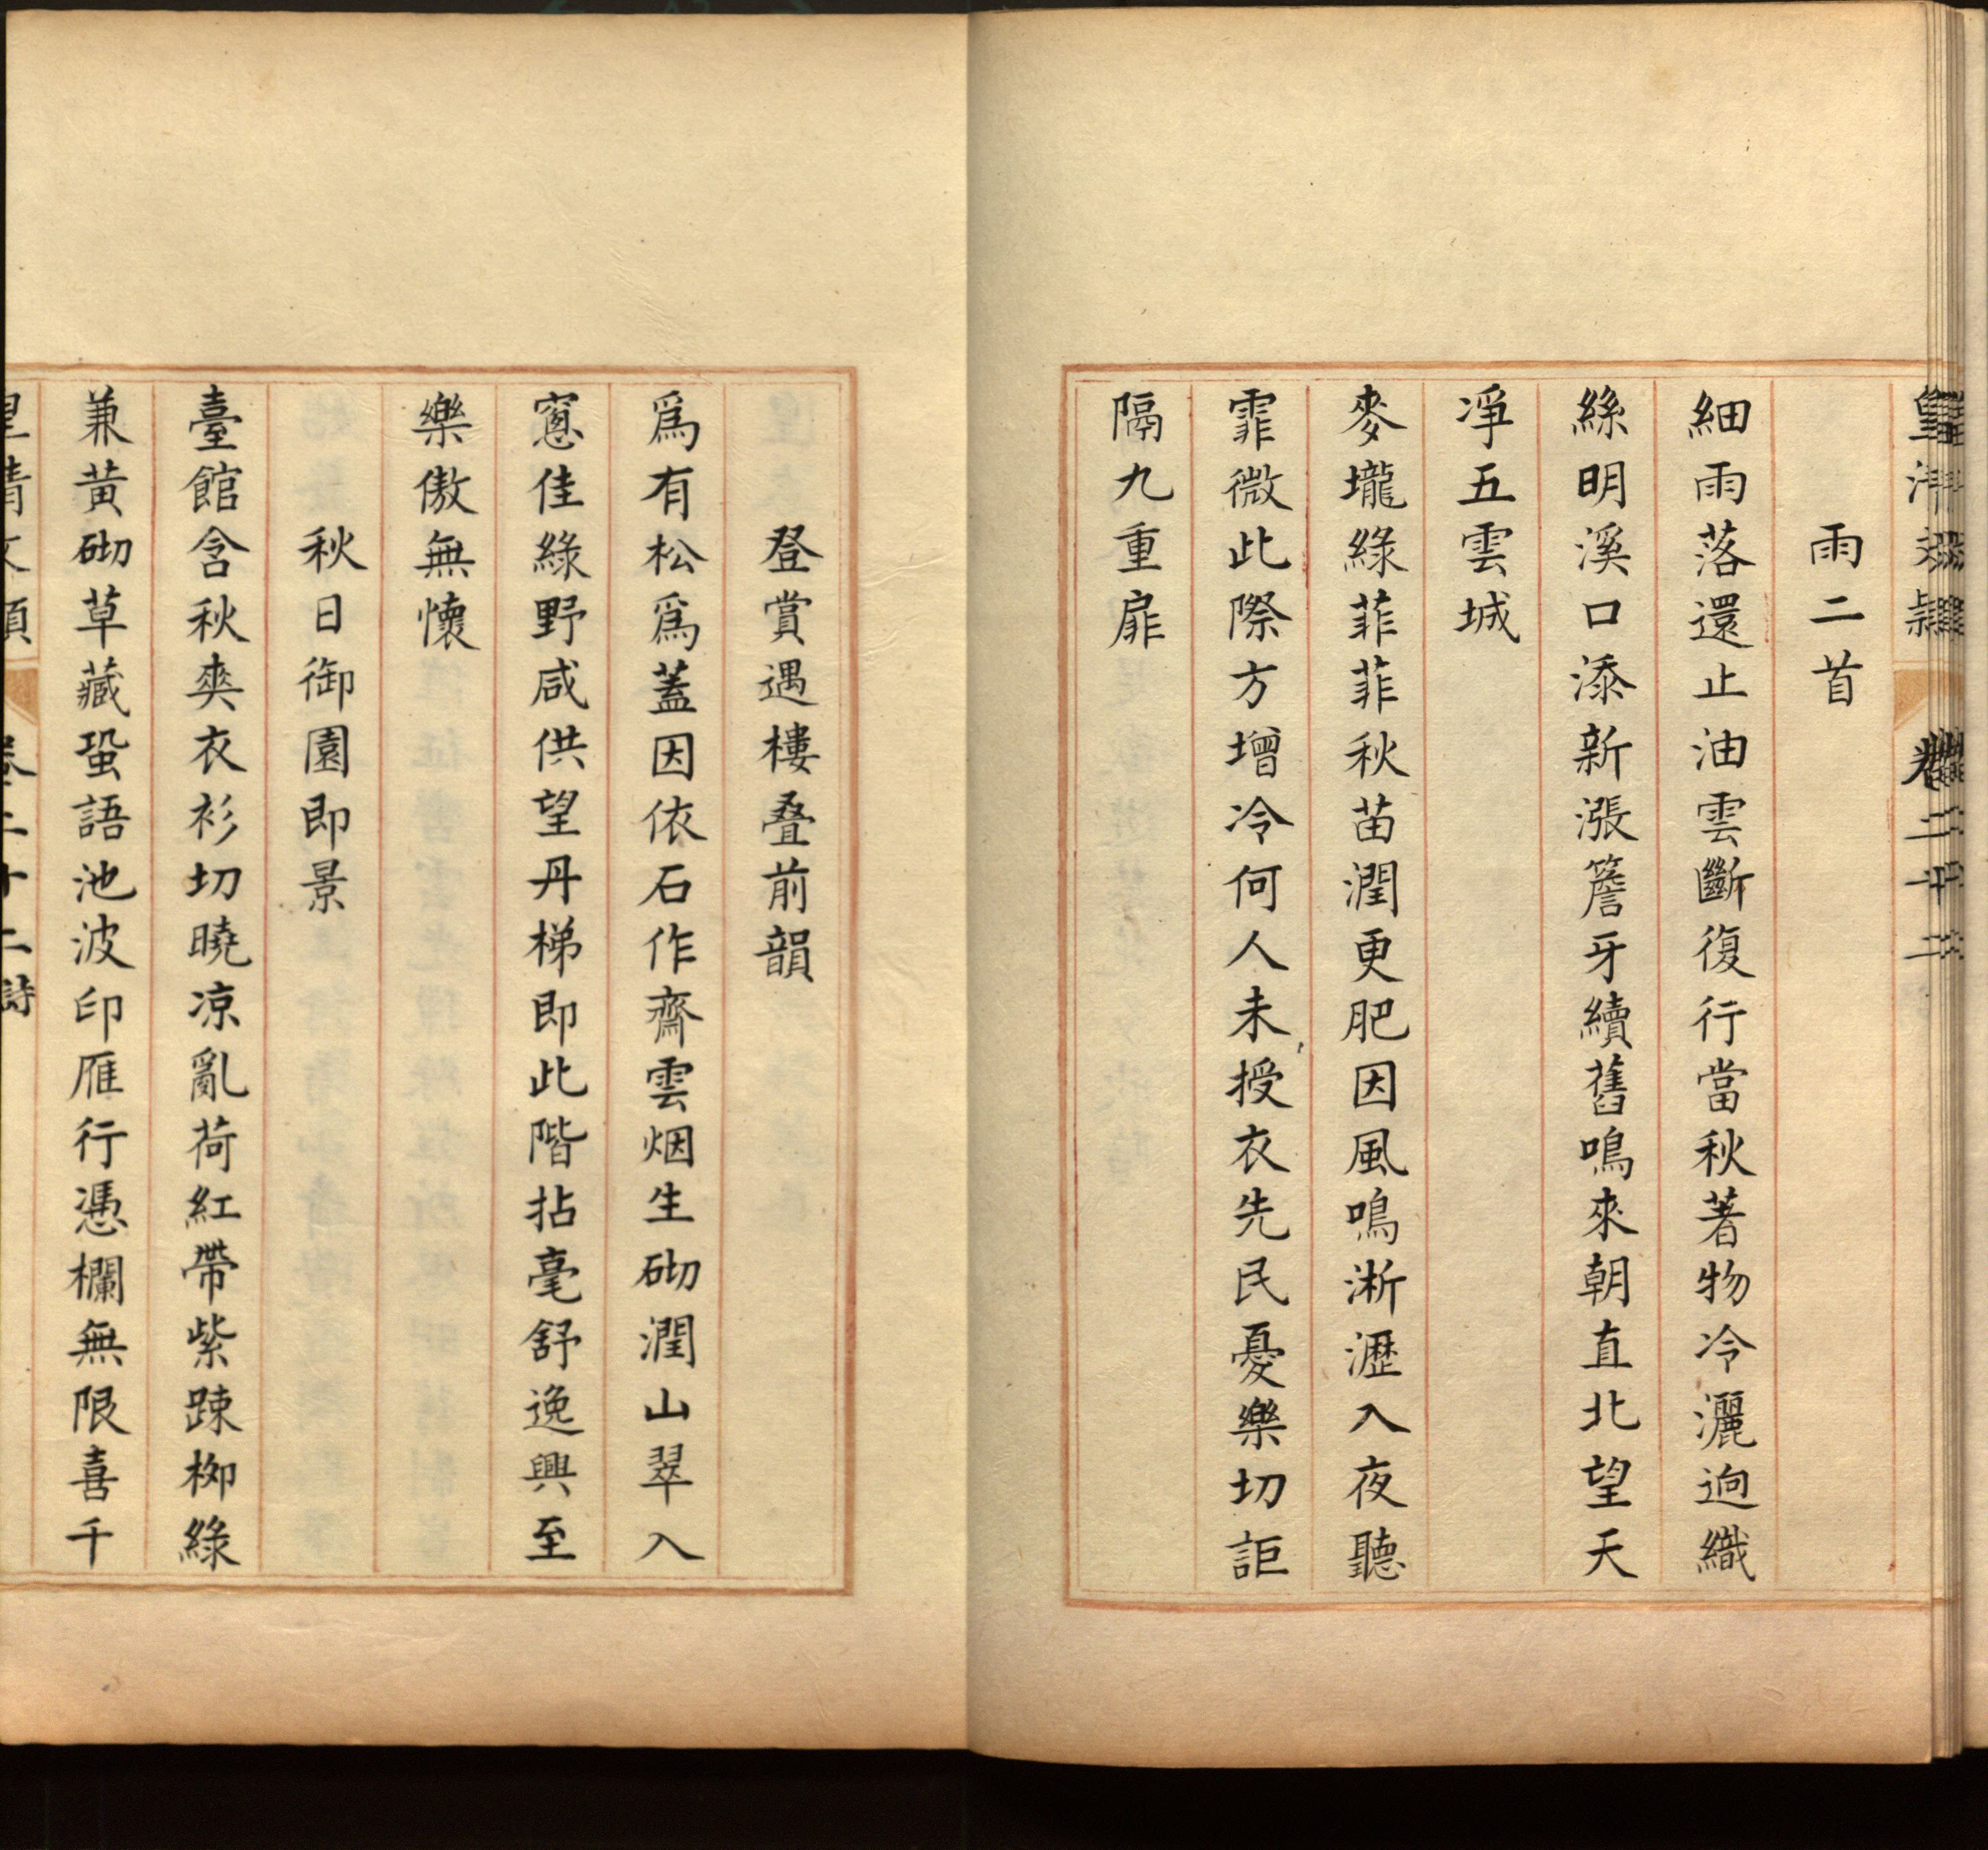 雨二首
細雨落還止油雲斷復行當秋著物冷灑迥織
絲明溪口添新漲簷牙續舊鳴來朝直北望天
凈五雲城
麥壠綠菲菲秋苗潤更肥因風鳴淅瀝入夜聽
霏微此際方增冷何人未授衣先民憂樂切詎
隔九重扉
登賞遇樓疊前韻
爲有松爲蓋因依石作齋雲烟生砌潤山翠入
窻佳綠野咸供望丹梯即此階拈毫舒逸興至
樂傲無懷
秋日御園即景
臺館含秋爽衣衫切曉凉亂荷紅帶紫踈栁綠
兼黃砌草藏蛩語池波印雁行憑欄無限喜千
皇清文頴 卷二十二 詩